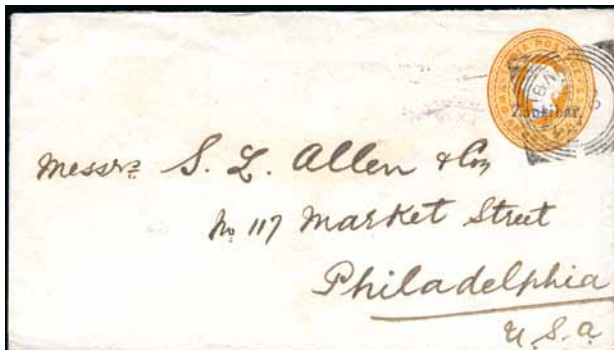 Zanzibar.
Messrs S. L. Allen & Co
No 117 Market Street
Philadelphia
U.S.a